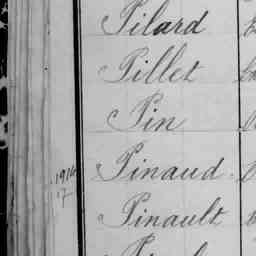 Pilard
Pillet
Pin
1914
7
Pinaud
Pinault